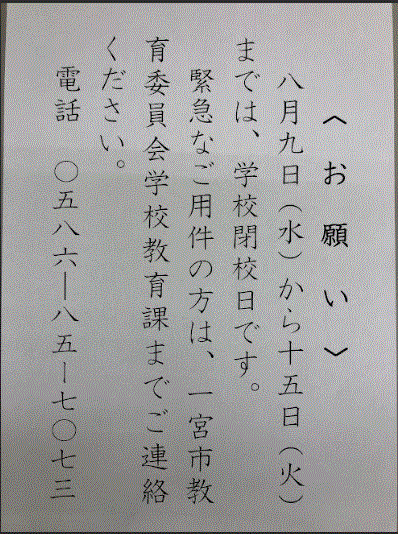 〈お願い〉
八月九日（水）から十五日（火）
までは、学校閉校日です。
緊急なご用件の方は、一宮市教
育委員会学校教育課までご連絡
ください。
電話　〇五八六―八五―七〇七三